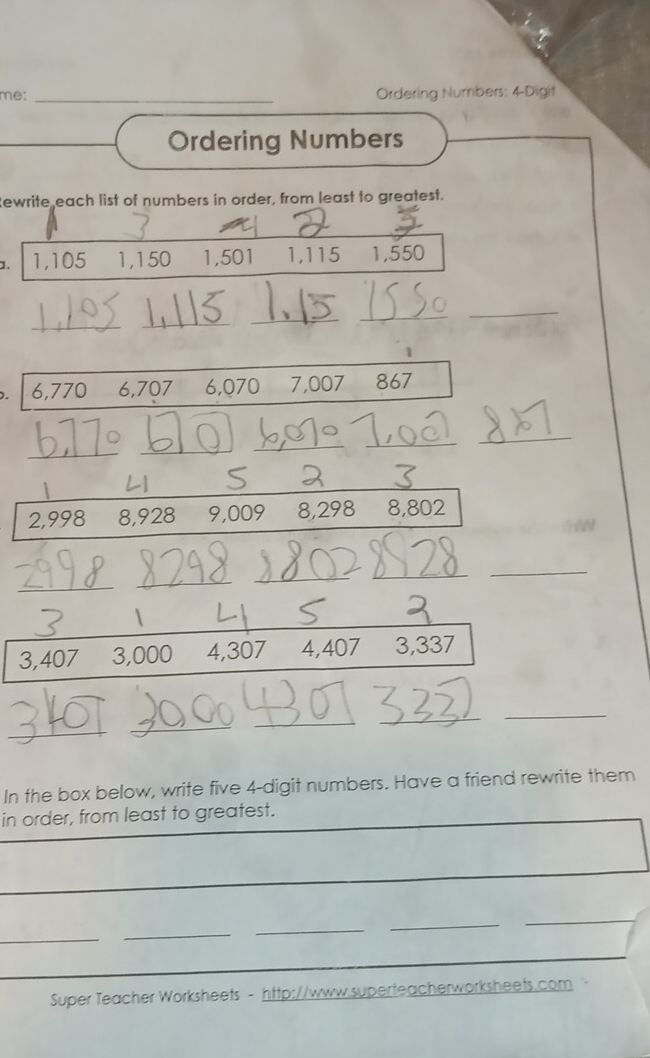 me: Ordering Numbers: 4-Digit
Ordering Numbers
ewrite each list of numbers in order, from least to greatest.
1 3 4 2 5
a. 1,105 1,150 1,501 1,115 1,550
1,105 1,115 1,15 1550
1
6,770 6,707 6,070 7,007 867
6,770 6,070 7,007 867
1 4 5 2 3
2,998 8,928 9,009 8,298 8,802
2998 8298 8802 8928
3 1 4 5 2
3,407 3,000 4,307 4,407 3,337
3407 30,00 4307 3337
In the box below, write five 4-digit numbers. Have a friend rewrite them
in order, from least to greatest.
Super Teacher Worksheets - http://www.superteacherworksheets.com